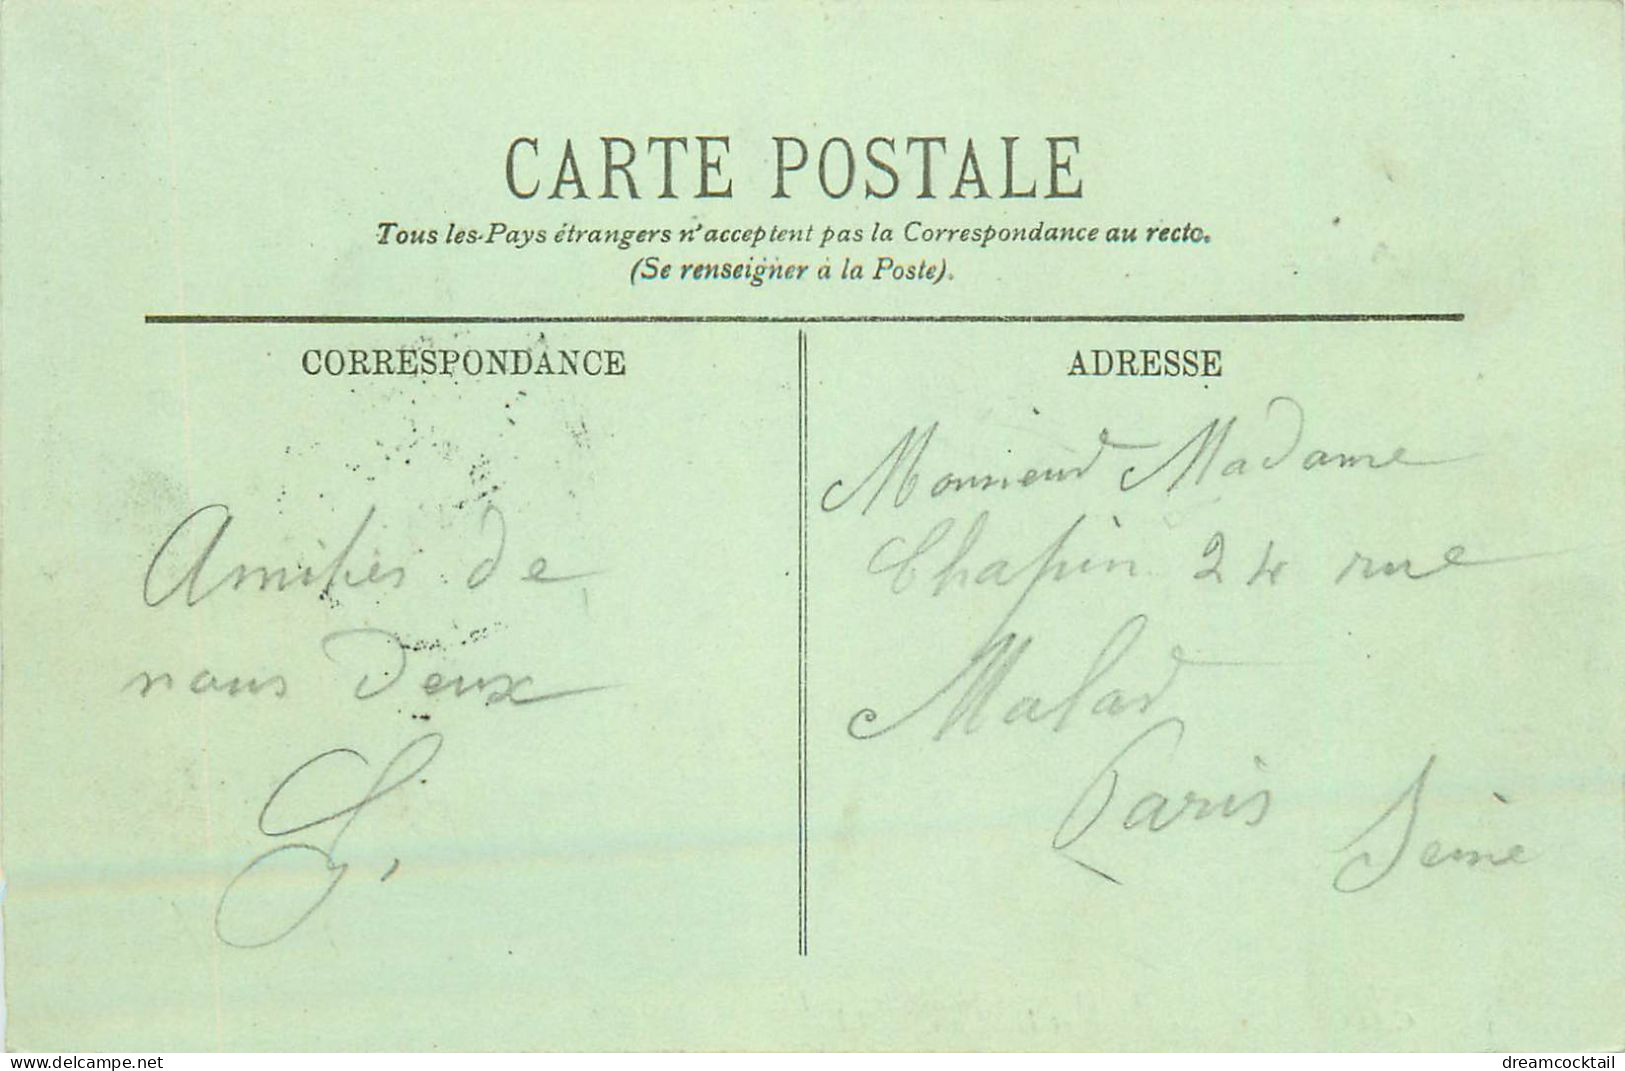 CARTE POSTALE
Tous les Pays étrangers n'acceptent pas la Correspondance au recto.
(Se renseigner à la Poste).
CORRESPONDANCE
Amitiés de
nous deux
G.
ADRESSE
Monsieur Madame
Chapin 24 rue
Malar
Paris
Seine
https://www.delcampe.net
dreamcocktail